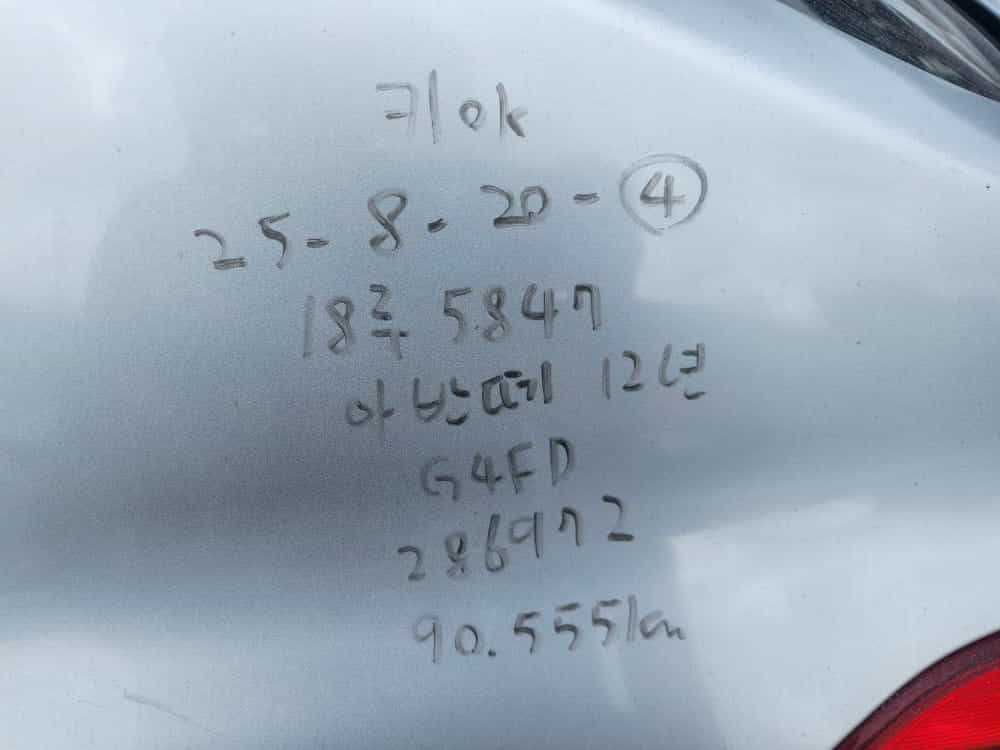 키ok
25-8-20-④
18루 5847
아반떼 12년
G4FD
286972
90.555km